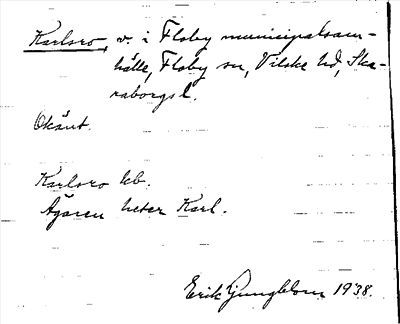 Karlsro, v. i Floby municipalsam-
hälle, Floby sn, Vilske hd, Ska-
raborgs l.
Okänt.
Karlsro lb.
Ägaren heter Karl.
Erik Ljungblom 1938.